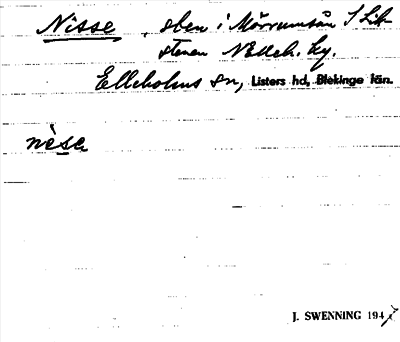 Nisse, sten i Mörrumsån S Lik-
stenen N Elleh. by.
Elleholms sn, Listers hd, Blekinge län.
nèse
J. SWENNING 194